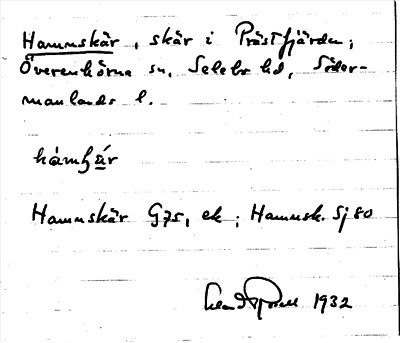 Hamnskär, skär i Prästfjärden;
Överenhörna sn, Selebo hd, Söder-
manlands l.
hàmʃä́r
Hamnskär G75, ek; Hamnsk. Sj80
1932